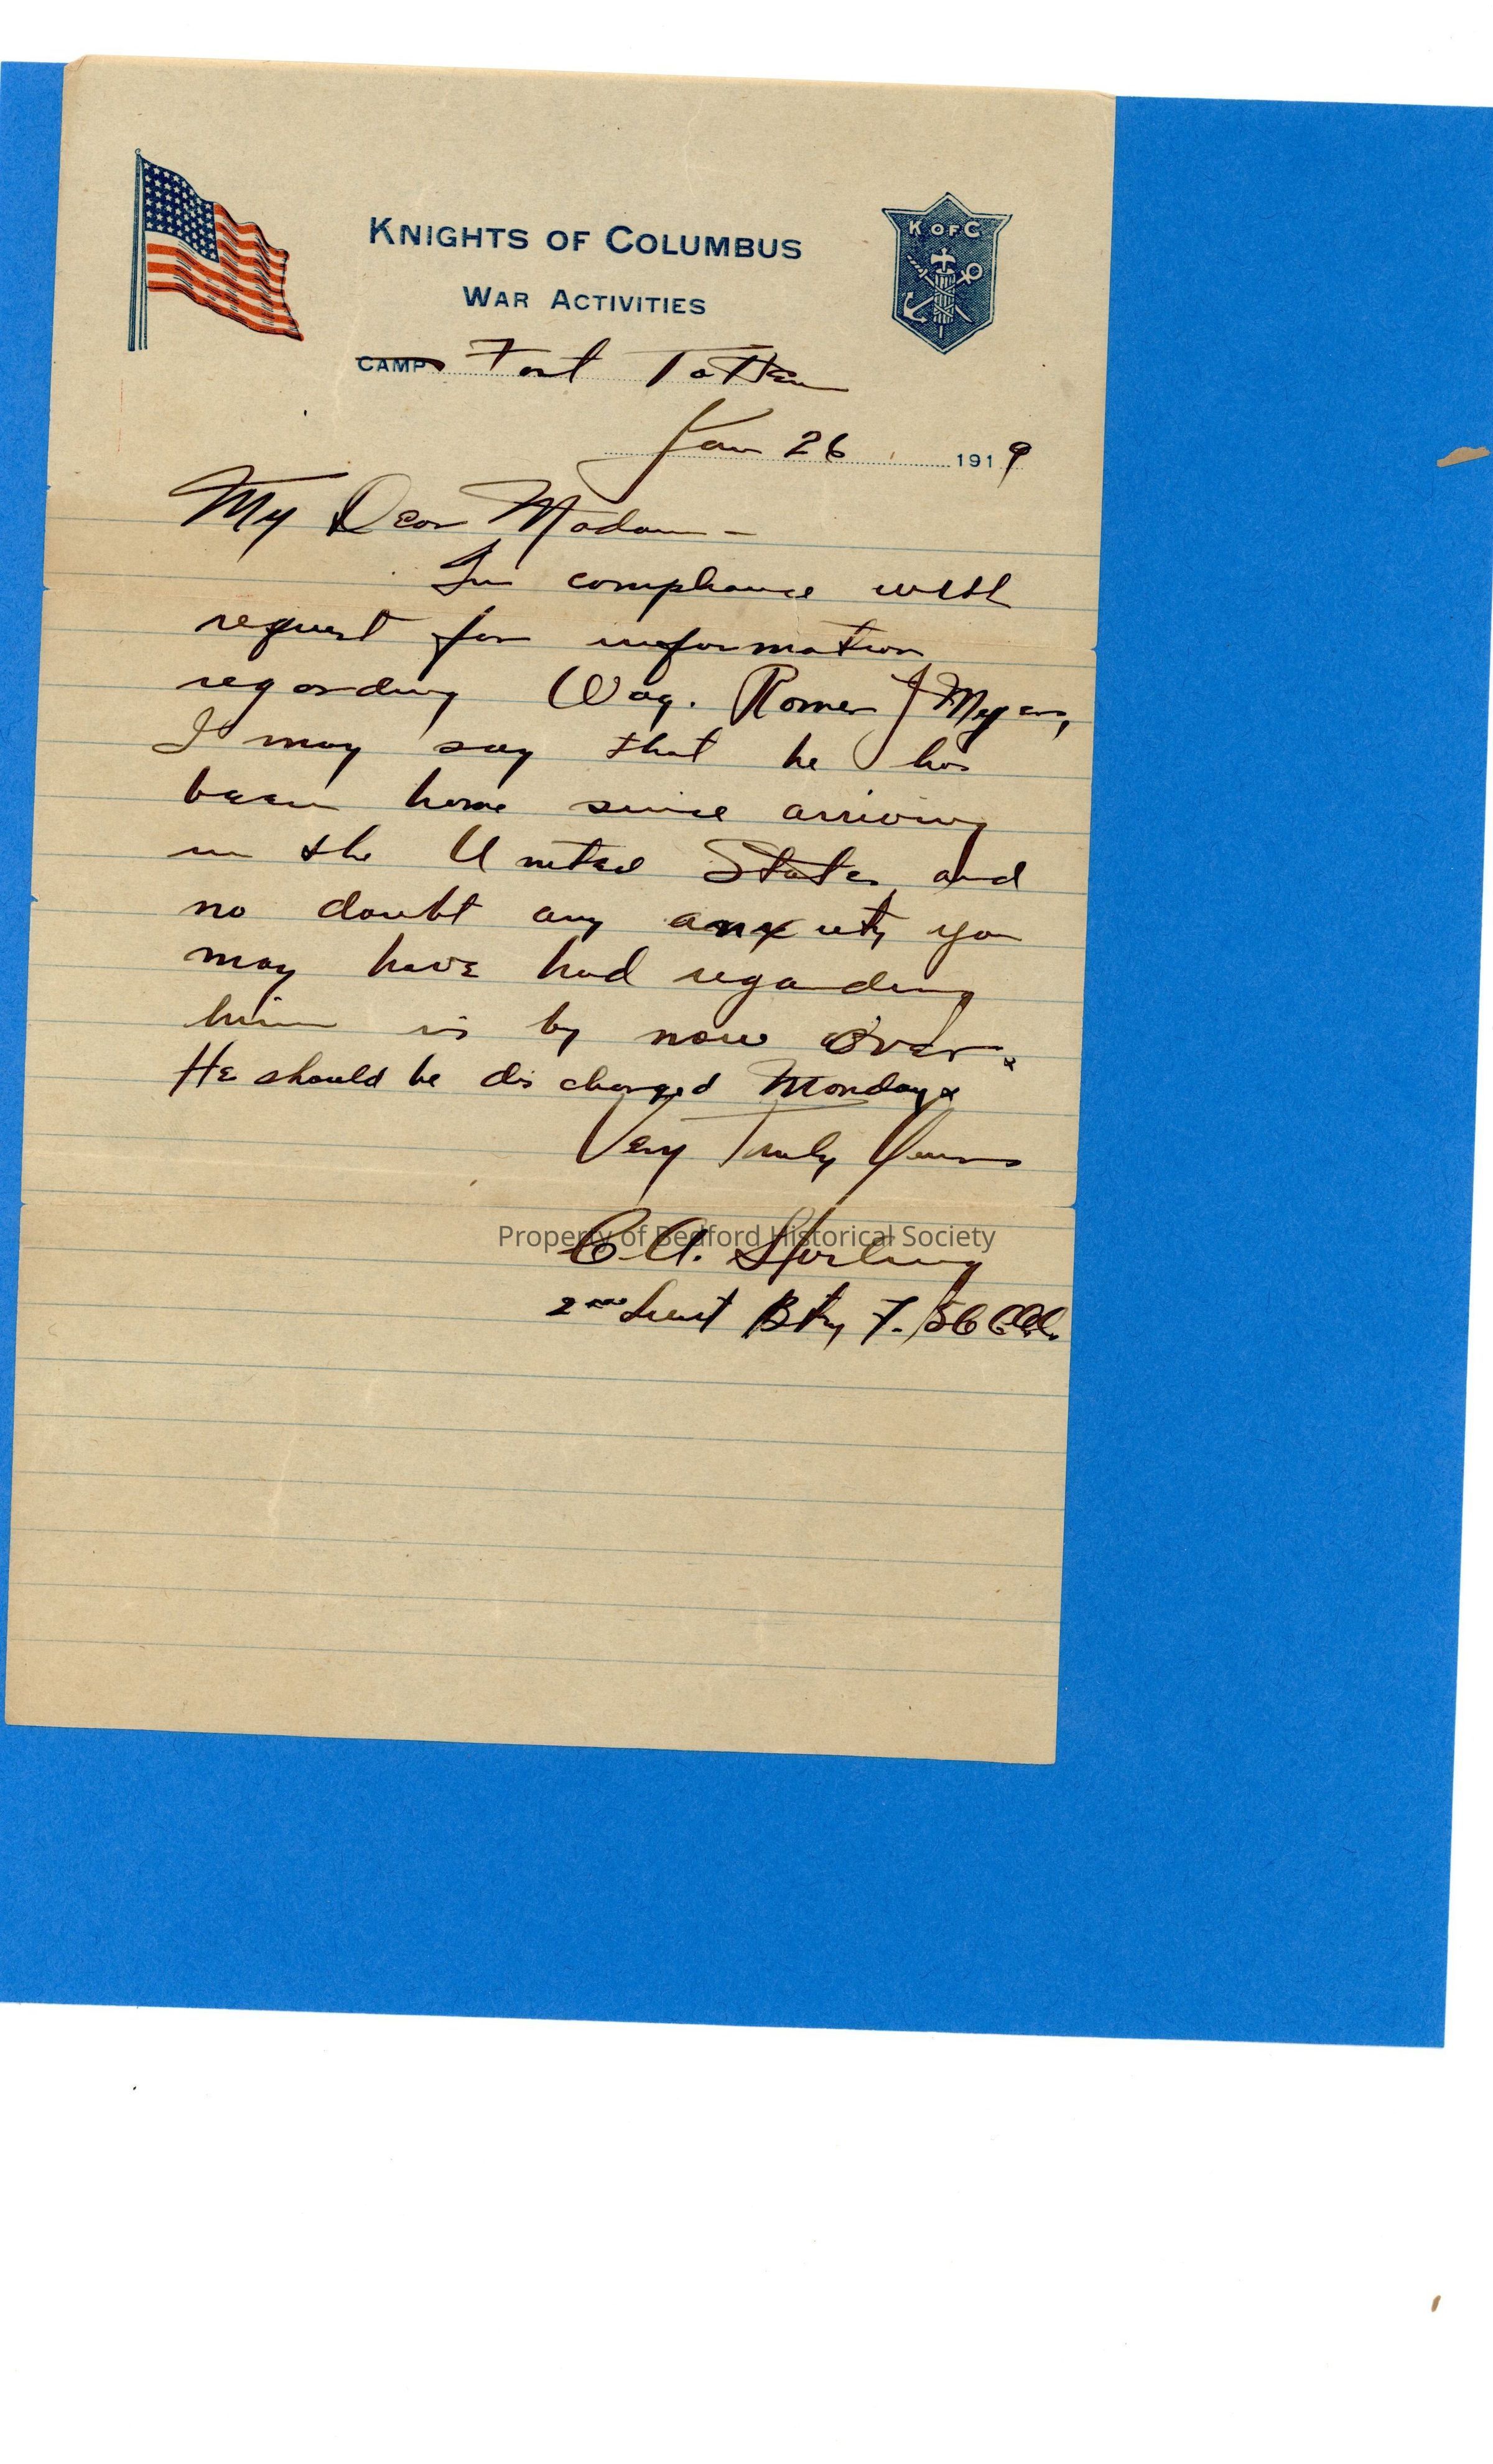 K OF C
KNIGHTS OF COLUMBUS
WAR ACTIVITIES
CAMP Fort Totten
Jan 26 1919
My Dear Madam -
In compliance with
request for information
regarding Wag. Romer J Myers,
I may say that he has
been home since arriving
in the United States, and
no doubt any anxiety you
may have had regarding
him is by now over.
He should be discharged Monday
Very Truly Yours
Property of Bedford Historical Society
C. A. Sterling
2nd Lieut Bty F. 56